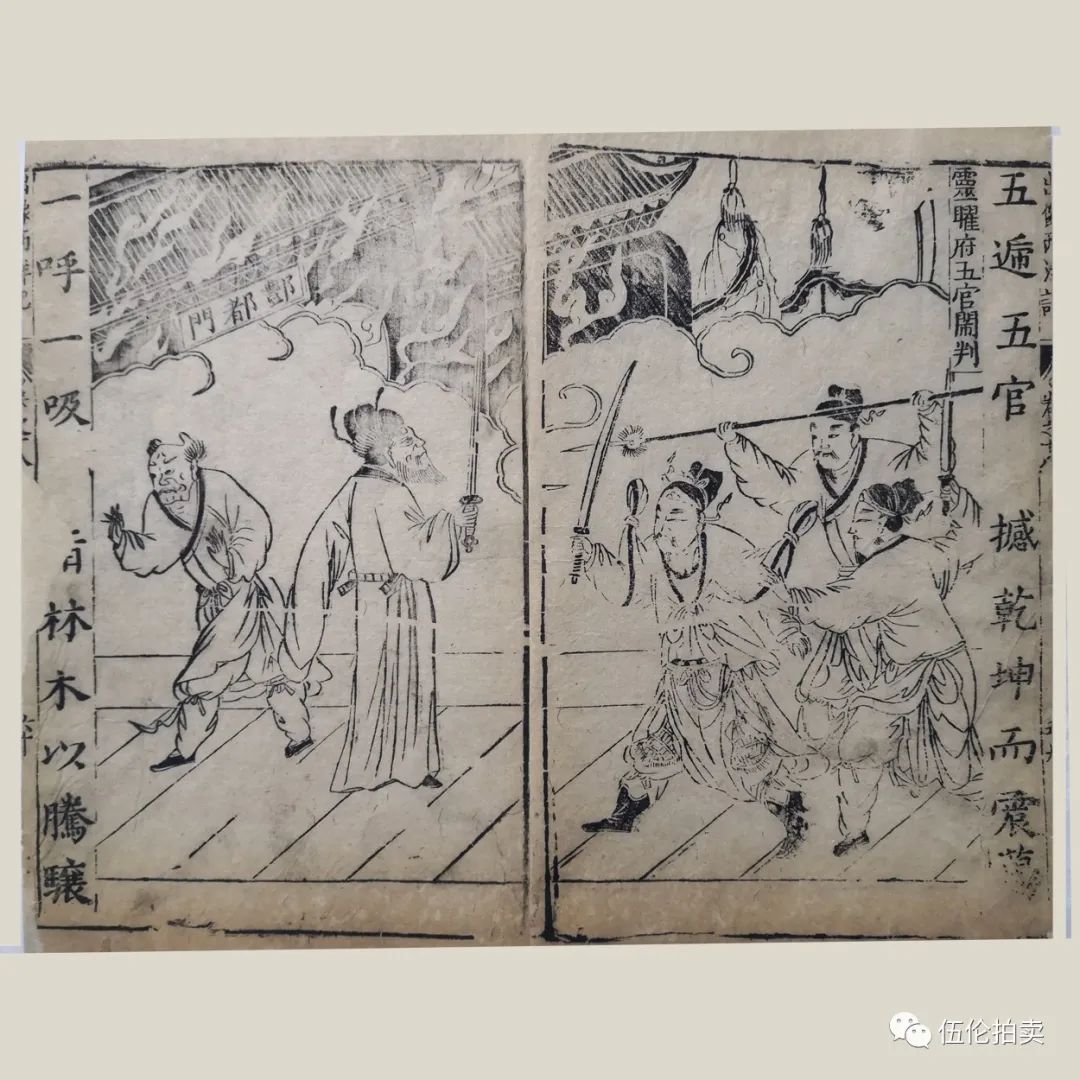 五遁五官 撼乾坤而震蕩
靈曜府五官鬧判
酆都門
一呼一吸 林木以騰驤
伍伦拍卖